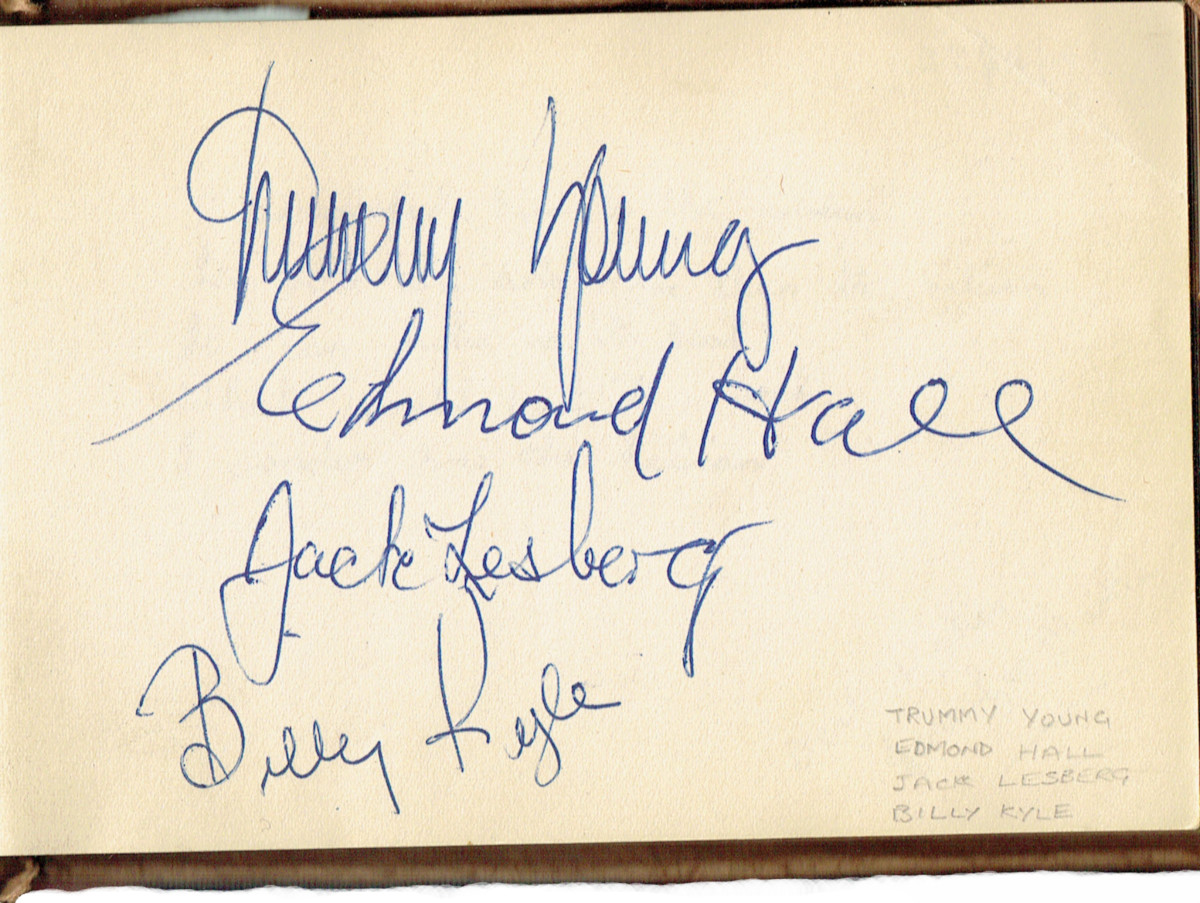 Trummy Young
Edmond Hall
Jack Lesberg
Billy Kyle
TRUMMY YOUNG
EDMOND HALL
JACK LESBERG
BILLY KYLE